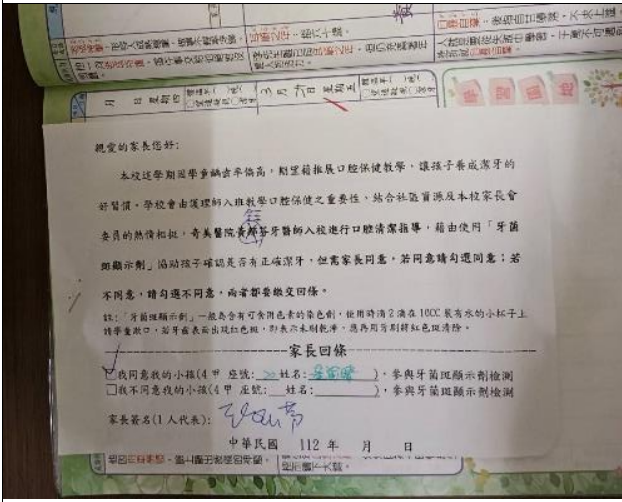 月 日 星期四
3月 日 星期五
學習園地
親愛的家長您好:
本校近學期因學童齲齒率偏高,期望藉推展口腔保健教學,讓孩子養成潔牙的
好習慣。學校會由護理師入班教學口腔保健之重要性,結合社區資源及本校家長會
委員的熱情相挺,奇美醫院黃 芬牙醫師入校進行口腔清潔指導,藉由使用「牙菌
斑顯示劑」協助孩子確認是否有正確潔牙,但需家長同意。若同意請勾選同意;若
不同意,請勾選不同意,兩者都要繳交回條。
註:「牙菌斑顯示劑」一般為含有可食用色素的染色劑,使用時滴2滴在10CC裝有水的小杯子上
請學童漱口,若牙齒表面出現紅色斑,即表示未刷乾淨,應再用牙刷將紅色斑清除。
家長回條
我同意我的小孩(4甲 座號: 20 姓名: ),參與牙菌斑顯示劑檢測
我不同意我的小孩(4甲 座號: 姓名: ),參與牙菌斑顯示劑檢測
家長簽名(1人代表):
中華民國 112年 月 日